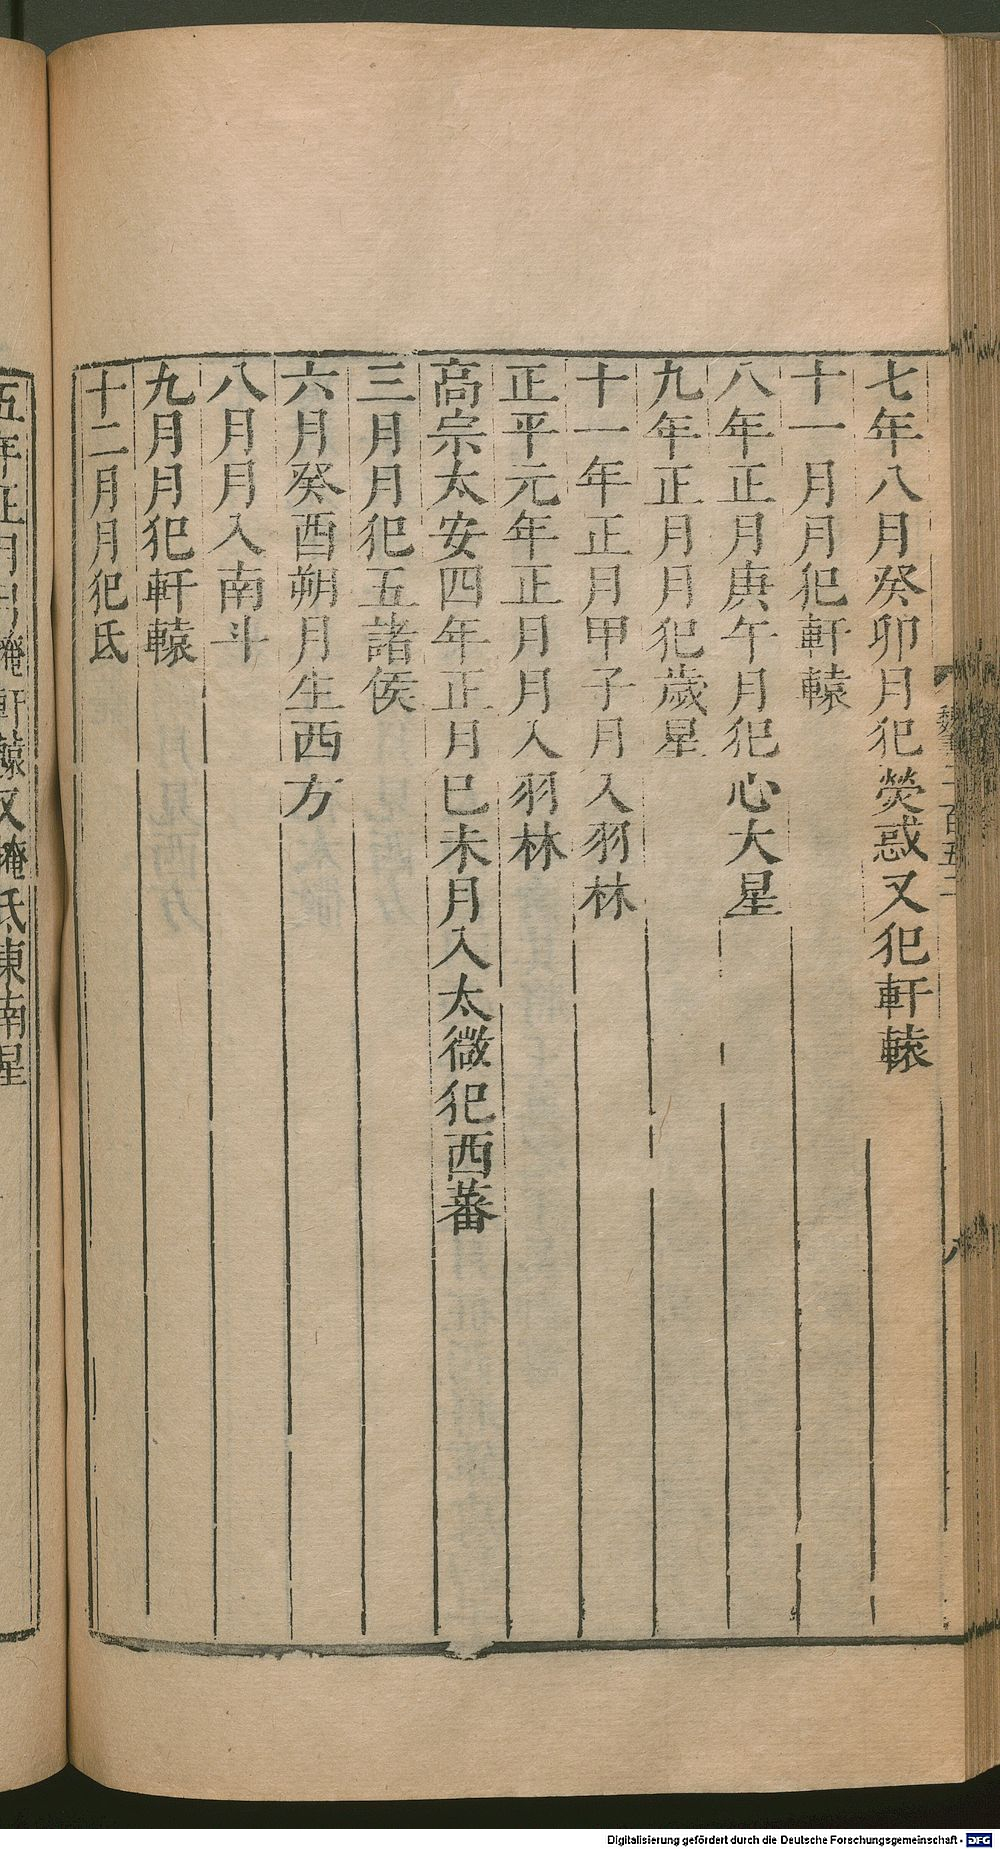 七年八月癸卯月犯熒惑又犯軒轅
十一月月犯軒轅
八年正月庚午月犯心大星
九年正月月犯歲星
十一年正月甲子月入羽林
正平元年正月月入羽林
高宗太安四年正月已未月入太微犯西蕃
三月月犯五諸侯
六月癸酉朔月生西方
八月月入南斗
九月月犯軒轅
十二月月犯氐
五年正月月掩軒轅又掩氐東南星
Digitalisierung gefördert durch die Deutsche Forschungsgemeinschaft - DFG